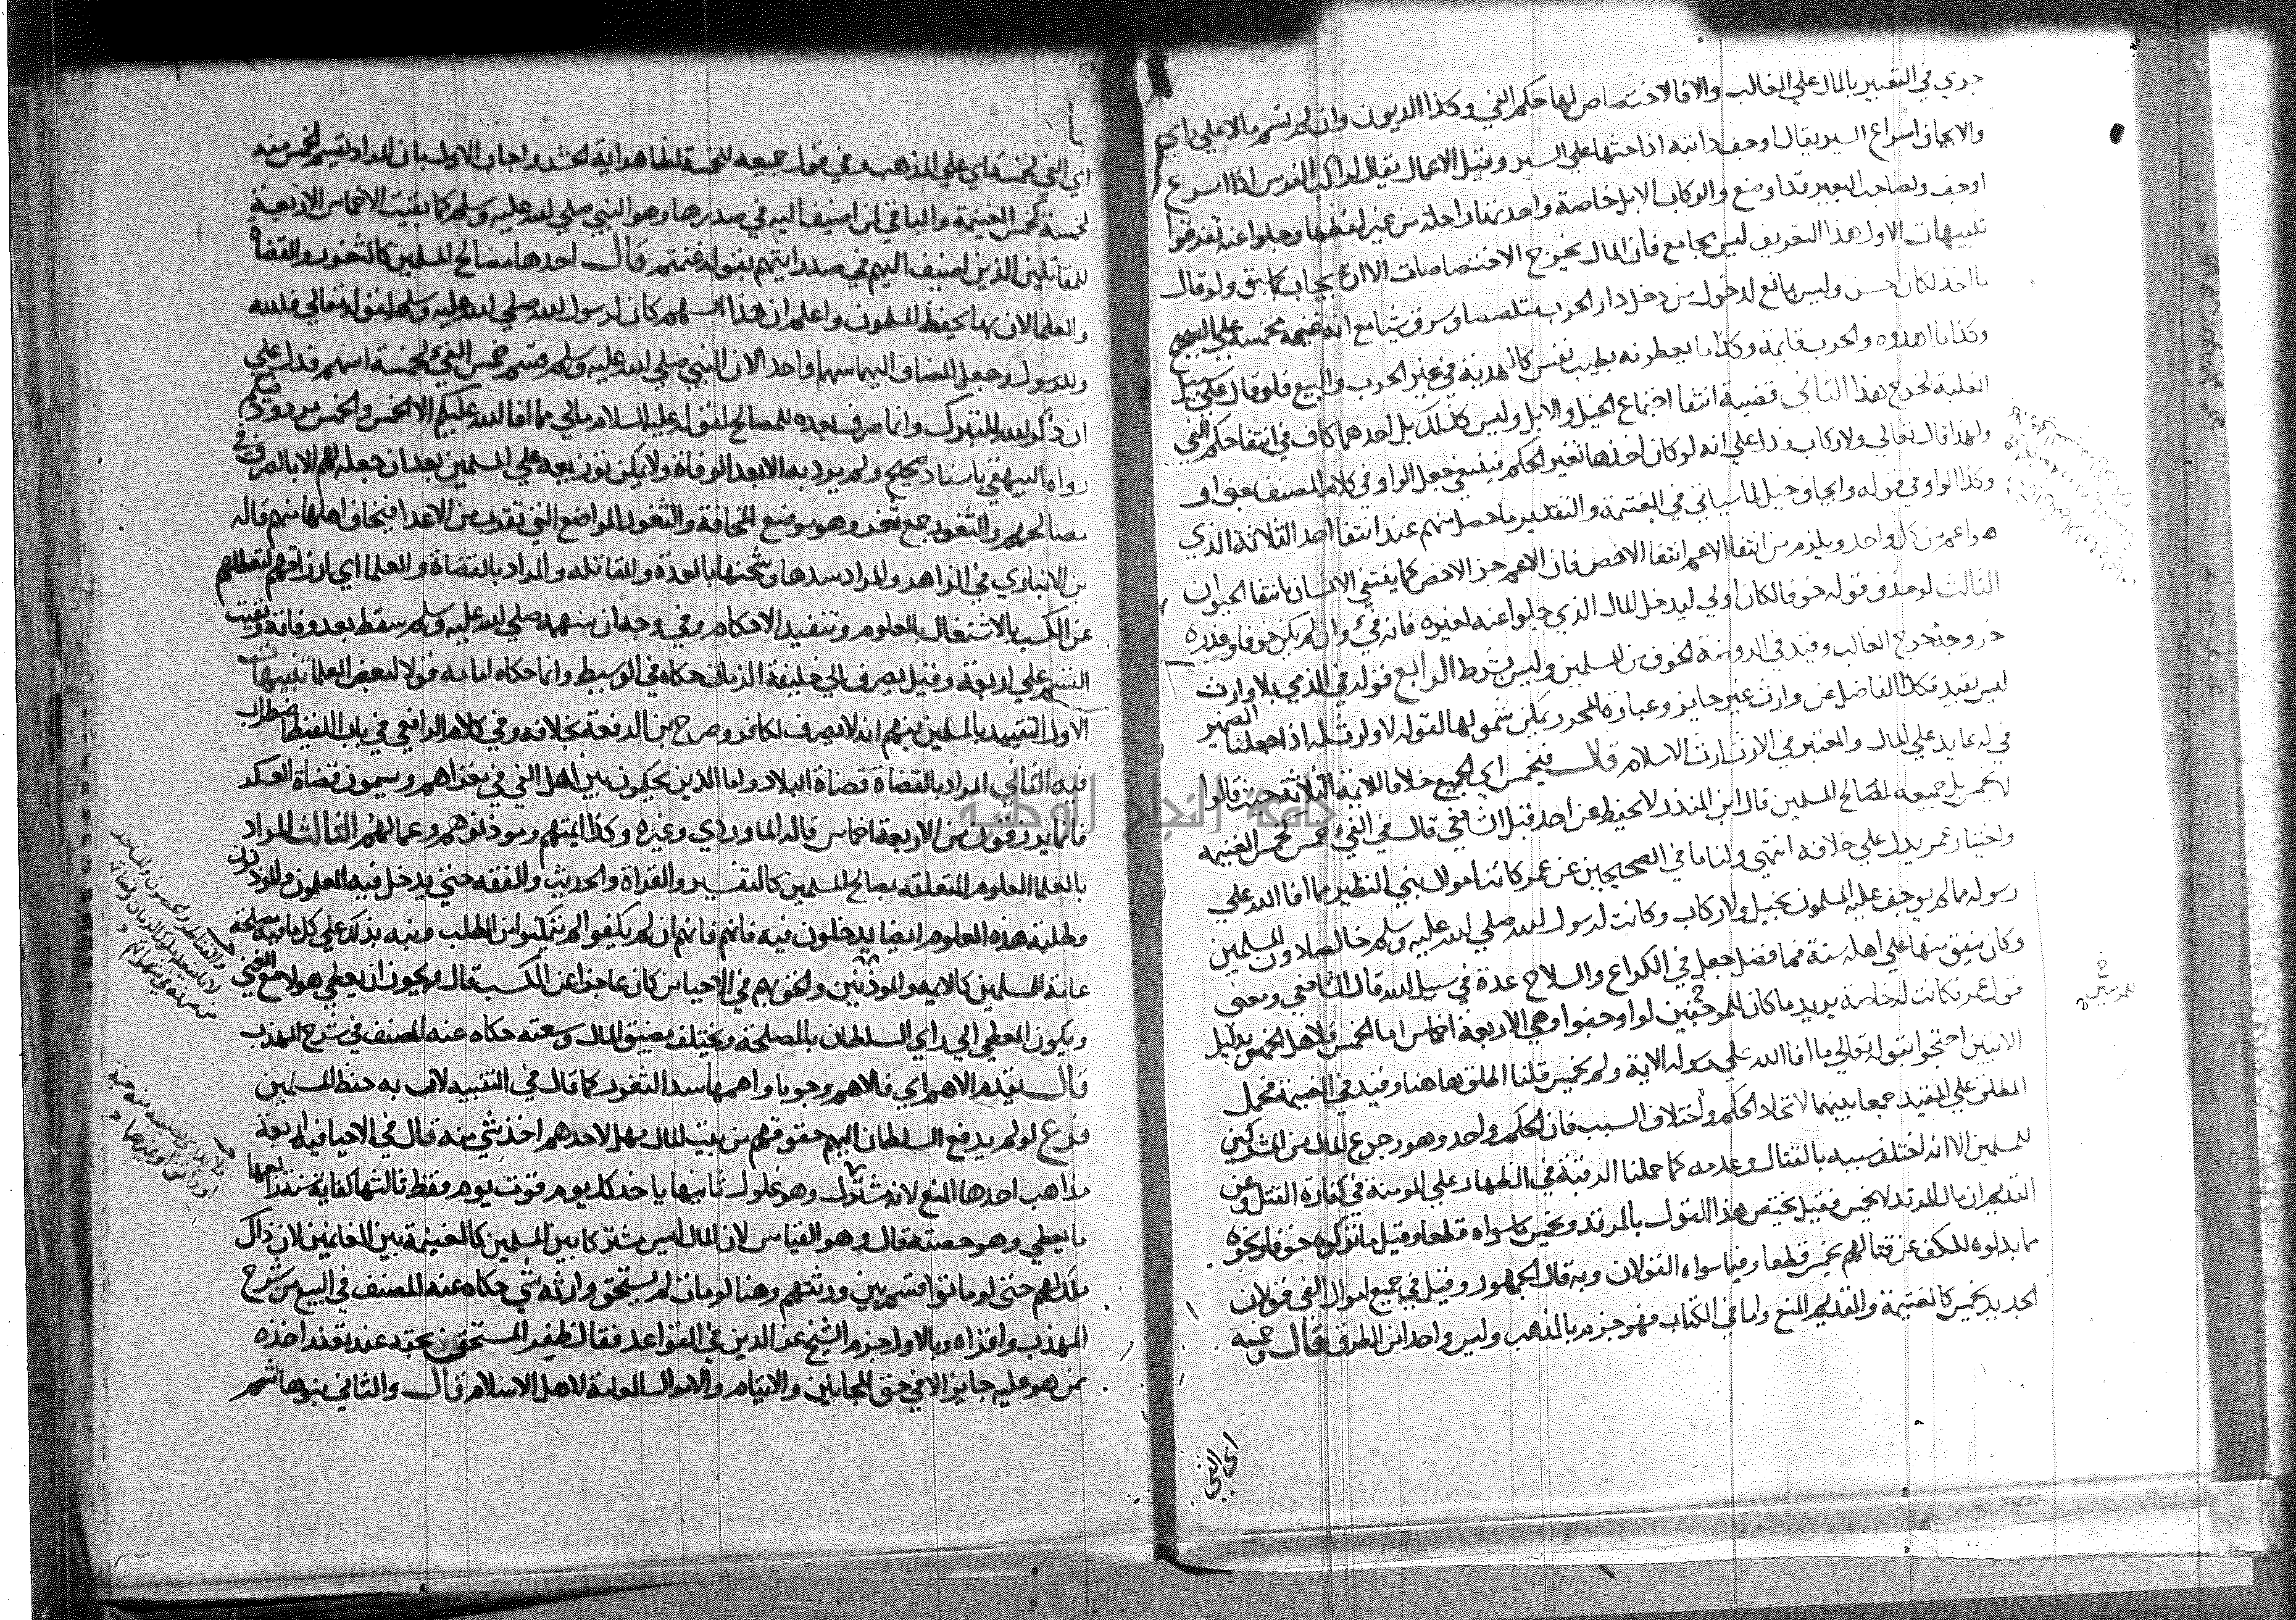 جري في التعبير بالمال علي الغالب والافالاختصاص لها حكم الفي وكذا الديون وان لم تسم مالا علي راي
والايجاف اسراع السير يقال اوجف دابته اذا حثها علي السير وقيل الاعمال يقال لراكب الفرس اذا اسرع
اوجف ولصاحب البعير قد اوضع والركاب الابل خاصة واحدتها راحلة من غير لفظها وجلوا عنه تفرقوا
تنبيهات الاول هذا التعريف ليس بجامع فان المال يخرج الاختصاصات الا ان يجاب كما سبق ولو قال
ما اخذ لكان احسن وليس بمانع لدخول من دخل دار الحرب متلصصا وسرق شيا مع انه غنيمة مخمسة علي الصحيح
وكذا ما اهدوه والحرب قايمة وكذا ما يعطونه بطيب نفس كالهدية في غير الحرب والبيع فلو قال علي سبيل
الغلبة لخرج هذا الثاني قضية انتفا اجتماع الخيل والابل وليس كذلك بل احدهما كاف في انتفا حكم الفي
ولهذا قال تعالي ولا ركاب فدل علي انه لو كان احدها تغير الحكم فينبغي جعل الواو في كلام المصنف بمعني او
وكذا الواو في قوله وايجاف خيل لما سياتي في الغنيمة والتقدير ما حصل منهم عند انتفا احد الثلاثة الذي
هو اعم من كل واحد ويلزم من انتفا الاعم انتفا الاخص فان الاعم جز الاخص كما ينتفي الانسان بانتفا الحيوان
الثالث لو حذف قوله خوفا لكان اولي ليدخل المال الذي جلوا عنه لغيره فانه فيء وان لم يكن خوفا وعذره
خروجه مخرج الغالب وقيد في الروضة الخوف من المسلمين وليس بشرط الرابع قوله في الذمي بلا وارث
ليس بقيد فكذا الفاضل عن وارث غير حايز وعبارة المحرر يمكن شمولها لقوله لا وارث له اذا جعلنا الضمير
في له عايد علي المال والمعتبر في الارث ارث الاسلام قال فيخمس اي الجميع خلافا للايمة الثلاثة حيث قالوا
لا يخمس بل جميعه لمصالح المسلمين قال ابن المنذر لا يحفظ عن احد قبل الشافعي قال في الفيء خمس كخمس الغنيمة
واختيار عمر يدل علي خلافه انتهي ولنا ما في الصحيحين عن عمر كانت اموال بني النظير مما افا الله علي
رسوله مما لم يوجف عليه المسلمون بخيل ولا ركاب وكانت لرسول الله صلي الله عليه وسلم خالصا دون المسلمين
وكان ينفق منها علي اهله سنة فما فضل جعله في الكراع والسلاح عدة في سبيل الله قال الشافعي ومعني
قول عمر فكانت له خاصة يريد ما كان للموجفين لو اوجفوا وهي الاربعة اخماس اما الخمس فلاهل الخمس بدليل
الايتين احتجوا بقوله تعالي ما افا الله علي رسوله الاية ولم يخمس قلنا المطلق هاهنا وقيد في الغنيمة فحمل
المطلق علي المقيد جمعا بينهما لاتحاد الحكم واختلاف السبب فان الحكم واحد وهو رجوع المال من المشركين
للمسلمين الا انه اختلف سببه بالقتال وعدمه كما حملنا الرقبة في الظهار علي المومنة في كفارة القتل وعن
القديم ان مال المرتد لا يخمس فقيل يختص هذا القول بالمرتد ويخمس ما سواه قطعا وقيل ما تركوه خوفا ونحوه
ما بذلوه للكف عن قتالهم يخمس قطعا وفيما سواه القولان وبه قال الجمهور وقيل في جميع اموال الفي قولان
الجديد يخمس كالغنيمة والقديم المنع واما في الكتاب فهو جزم بالمذهب وليس واحدا من الطرق قال وخمسه
اي الفي
اي الفي لخمسة اي علي المذهب وفي قول جميعه للخمسة لظاهر اية الحشر واجاب الاول بان المراد يقسم لخمس منه
لخمسة كخمس الغنيمة والباقي لمن اضيف اليه في صدرها وهو النبي صلي الله عليه وسلم كما بقيت الاخماس الاربعة
للمقاتلين الذين اضيف اليهم في صدر ايتهم بقوله غنمتم قال احدها مصالح المسلمين كالثغور والقضاة
والعلما لان بها يحفظ المسلمون واعلم ان هذا السهم كان لرسول الله صلي الله عليه وسلم لقوله تعالي فلله
وللرسول وجعل المضاف اليهما سهما واحدا لان النبي صلي الله عليه وسلم قسم خمس الفيء لخمسة اسهم فدل علي
ان ذكر الله للتبرك وانما صرف بعده للمصالح لقوله عليه السلام مالي مما افا الله عليكم الا الخمس والخمس مردود فيكم
رواه البيهقي باسناد صحيح ولم يرد به الا بعد الوفاة ولا يمكن توزيعه علي المسلمين بعد ان جعله لهم الا بالصرف في
مصالحهم والثغور جمع ثغر وهو موضع المخافة والثغور المواضع التي تقرب من الاعدا فيخاف اهلها منهم قاله
بن الانباري في الزاهر والمراد سدها وشحنها بالعدة والمقاتله والمراد بالقضاة والعلما اي ارزاقهم لتعطلهم
عن الكسب بالاشتغال بالعلوم وتنفيد الاحكام وفي وجه ان سهمه صلي الله عليه وسلم سقط بعد وفاته وبقيت
القسم علي اربعة وقيل يصرف الي خليفة الزمان حكاه في الوسيط وانما حكاه امامه قولا لبعض العلما تنبيهات
الاول التقييد بالمسلمين يفهم انه لا يصرف لكافر وصرح بن الرفعة بخلافه وفي كلام الرافعي في باب اللقيط اضطراب
فيه الثاني المراد بالقضاة قضاة البلاد واما الذين يحكمون بين اهل الفي في مغزاهم ويسمون قضاة العسكر
فانما يرزقون من الاربعة اخماس قاله الماوردي وغيره وكذا ايمتهم وموذنوهم وعمالهم الثالث المراد
بالعلما العلوم المتعلقه بمصالح المسلمين كالتفسير والقراة والحديث والفقه حتي يدخل فيه المعلمون والموذنون
وطلبة هذه العلوم ايضا يدخلون فيه فانهم فانهم ان لم يكفوا لم يتمكنوا من الطلب ونبه بذلك علي كل ما فيه مصلحة
عامة للمسلمين كالايمه والموذنين والحق بهم في الاحيا من كان عاجزا عن المكسب قال ويجوز ان يعطي هولا مع الغني
ويكون المعطي الي راي السلطان بالمصلحة ويختلف بضيق المال وسعته حكاه عنه المصنف في شرح المهذب
قال يقدم الاهم اي فالاهم وجوبا واهمها سد الثغور كما قال في التنبيه لان به حفظ المسلمين
فرع لو لم يدفع السلطان اليهم حقوقهم من بيت المال فهل لاحدهم اخذ شي منه قال في الاحيا فيه اربعة
مذاهب احدها المنع لانه مشترك وهو غلول ثانيها ياخذ كل يوم قوت يوم فقط ثالثها كفاية سنة رابعها
ما يعطي وهو حصته قال وهو القياس لان المال ليس مشتركا بين المسلمين كالغنيمة بين الغانمين لان ذاك
ملك لهم حتي لو ماتوا قسم بين ورثتهم وهنا لو مات لم يستحق وارثه شي حكاه عنه المصنف في البيع من شرح
المهذب واقراه وبالاول جزم الشيخ عز الدين في القواعد فقال ظفر المستحقين بحقه عند تعذر اخذه
ممن هو عليه جايز الا في حق المجانين والايتام والاموال العامة لاهل الاسلام قال والثاني بنو هاشم